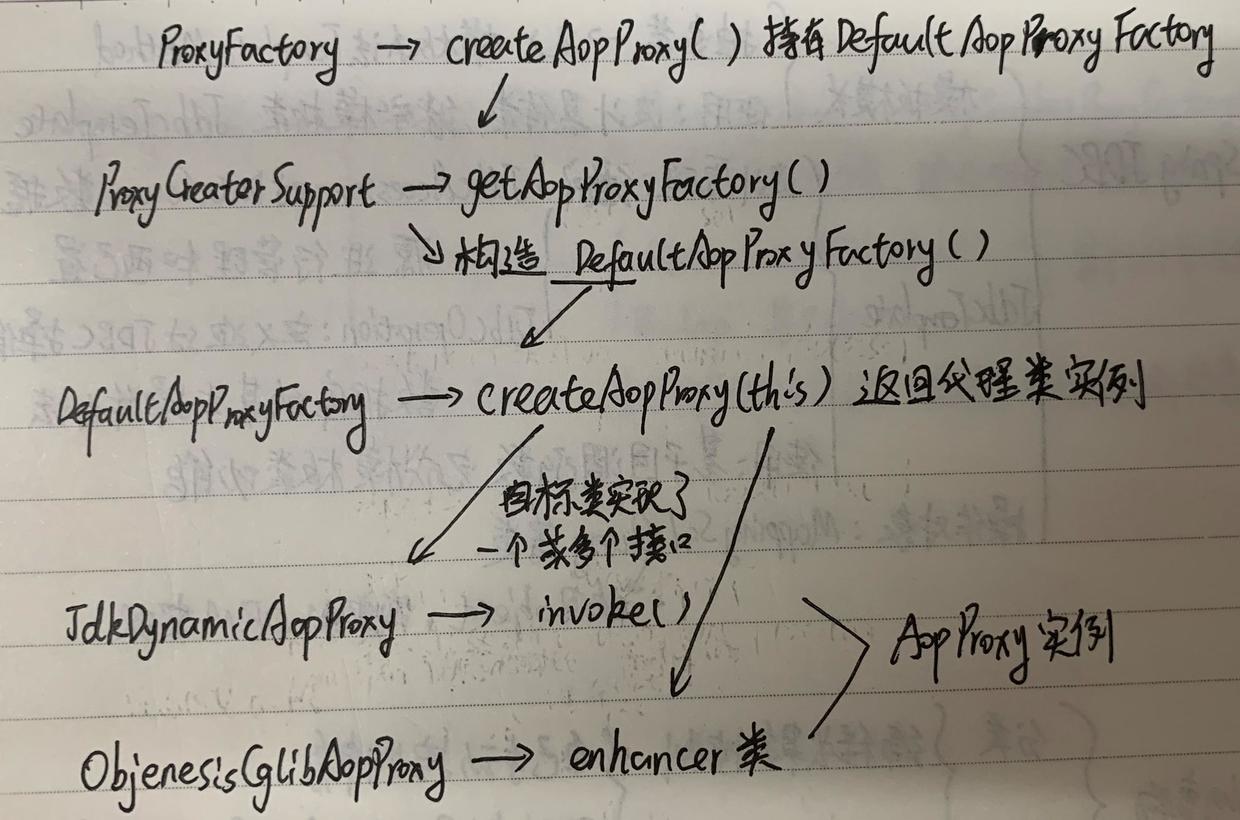 ProxyFactory → createAopProxy() 持有DefaultAopProxyFactory
ProxyCreaterSupport → getAopProxyFactory()
构造 DefaultAopProxyFactory()
DefaultAopProxyFactory → createAopProxy(this) 返回代理类实例
目标类实现了
一个或多个接口
JdkDynamicAopProxy → invoke()
AopProxy实例
ObjenesisCglibAopProxy → enhancer类